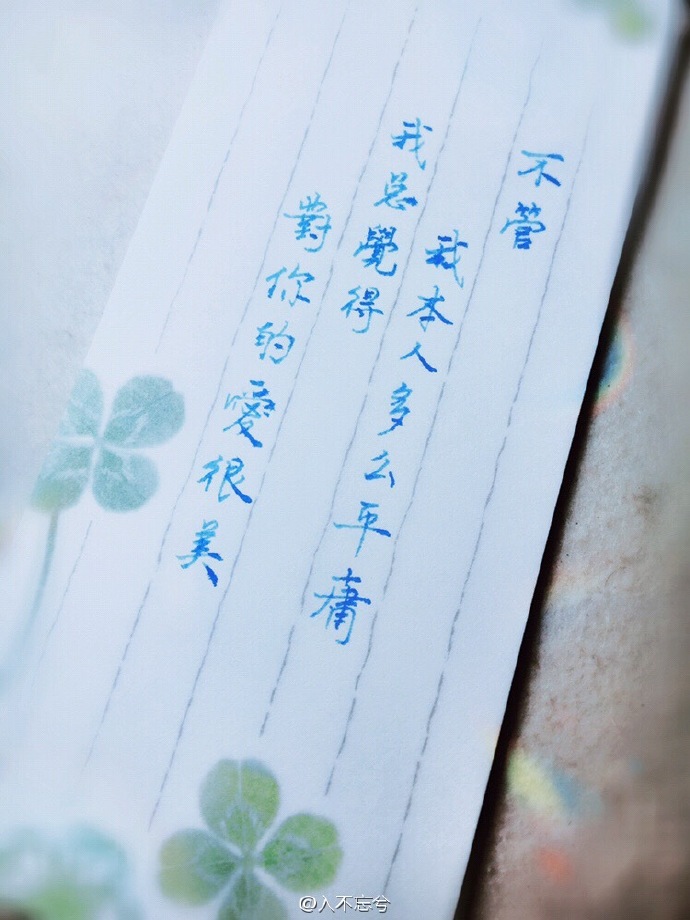 不管
我本人多么平庸
我总覺得
對你的愛很美
@人不忘兮